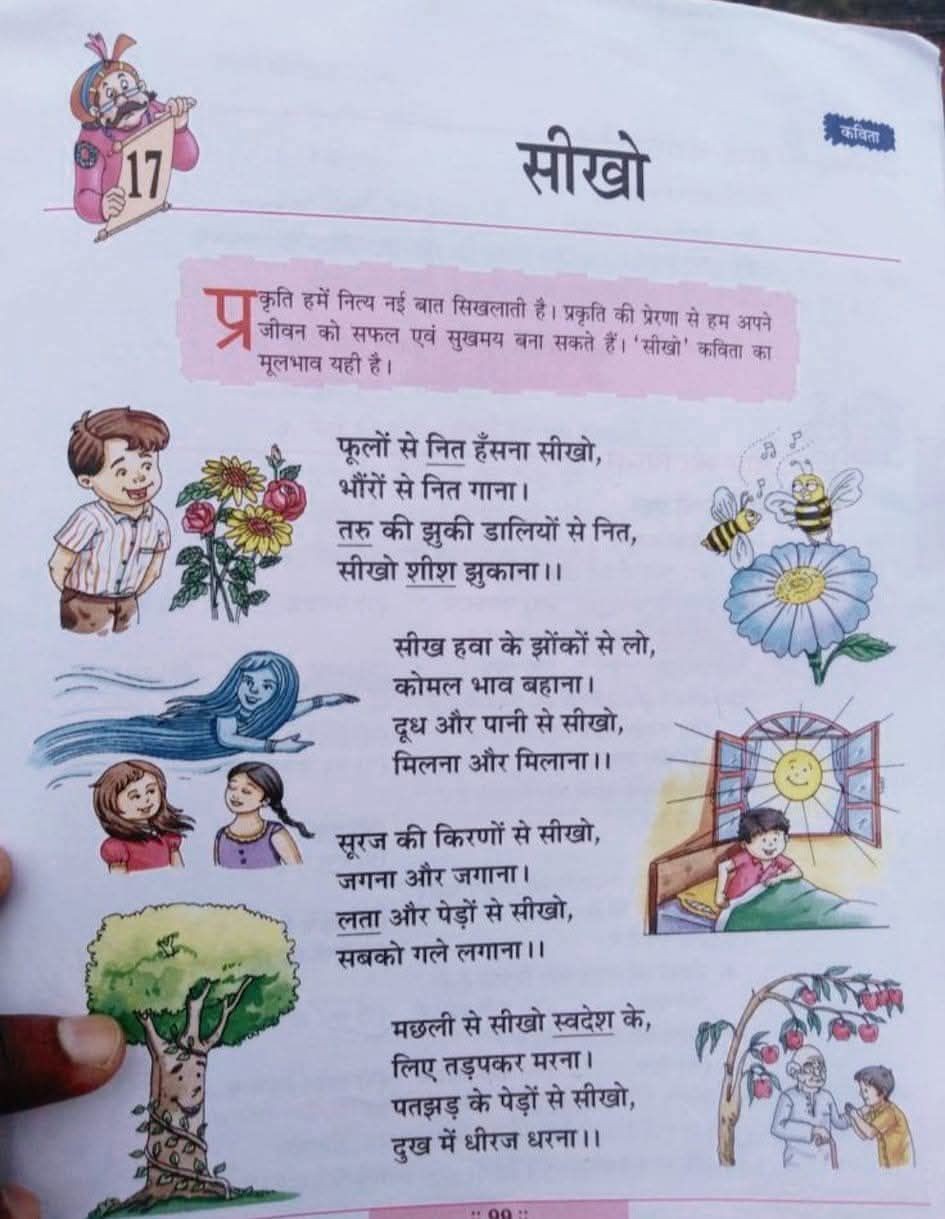 17
कविता
सीखो
प्रकृति हमें नित्य नई बात सिखलाती है। प्रकृति की प्रेरणा से हम अपने
जीवन को सफल एवं सुखमय बना सकते हैं। 'सीखो' कविता का
मूलभाव यही है।
फूलों से नित हँसना सीखो,
भौंरों से नित गाना।
तरु की झुकी डालियों से नित,
सीखो शीश झुकाना।।
सीख हवा के झोंकों से लो,
कोमल भाव बहाना।
दूध और पानी से सीखो,
मिलना और मिलाना।।
सूरज की किरणों से सीखो,
जगना और जगाना।
लता और पेड़ों से सीखो,
सबको गले लगाना।।
मछली से सीखो स्वदेश के,
लिए तड़पकर मरना।
पतझड़ के पेड़ों से सीखो,
दुख में धीरज धरना।।
:: 99 ::